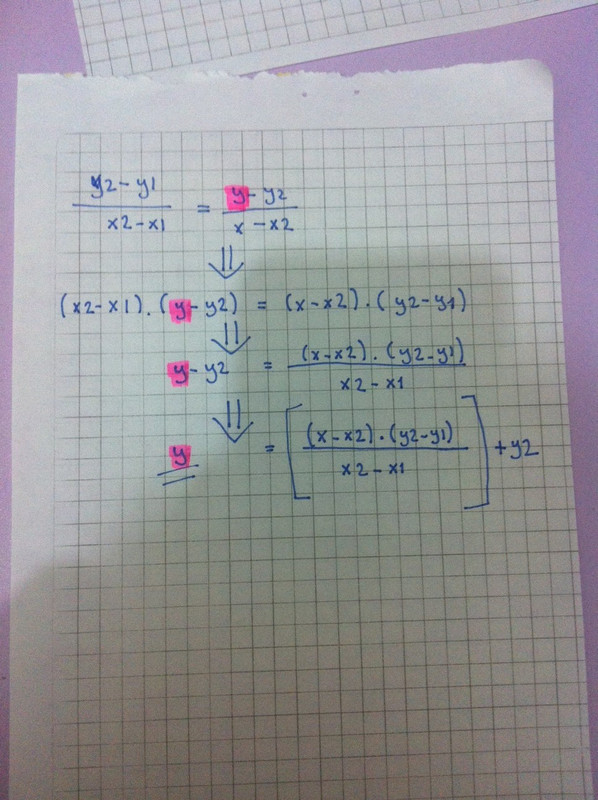 y2 - y1 / x2 - x1 = y - y2 / x - x2
⇓
(x2 - x1) . (y - y2) = (x - x2) . (y2 - y1)
⇓
y - y2 = (x - x2) . (y2 - y1) / x2 - x1
⇓
y = [(x - x2) . (y2 - y1) / x2 - x1] + y2